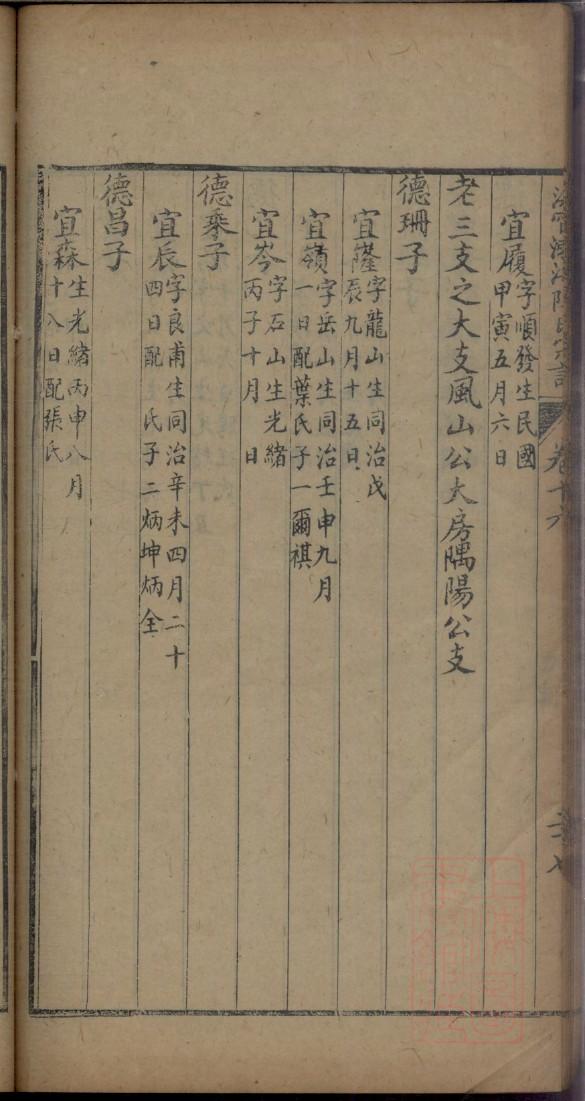 宜履字順發生民國
甲寅五月六日
老三支之大支風山公大房隅陽公支
德珊子
宜隆字龍山生同治戊
辰九月十五日
宜嶺字岳山生同治壬申九月
一日配葉氏子一爾祺
宜岑字石山生光緒
丙子十月　日
德桒子
宜辰字良甫生同治辛未四月二十
四日配　氏子二炳坤炳全
德昌子
宜森生光緒丙申八月
十八日配張氏
卷十六